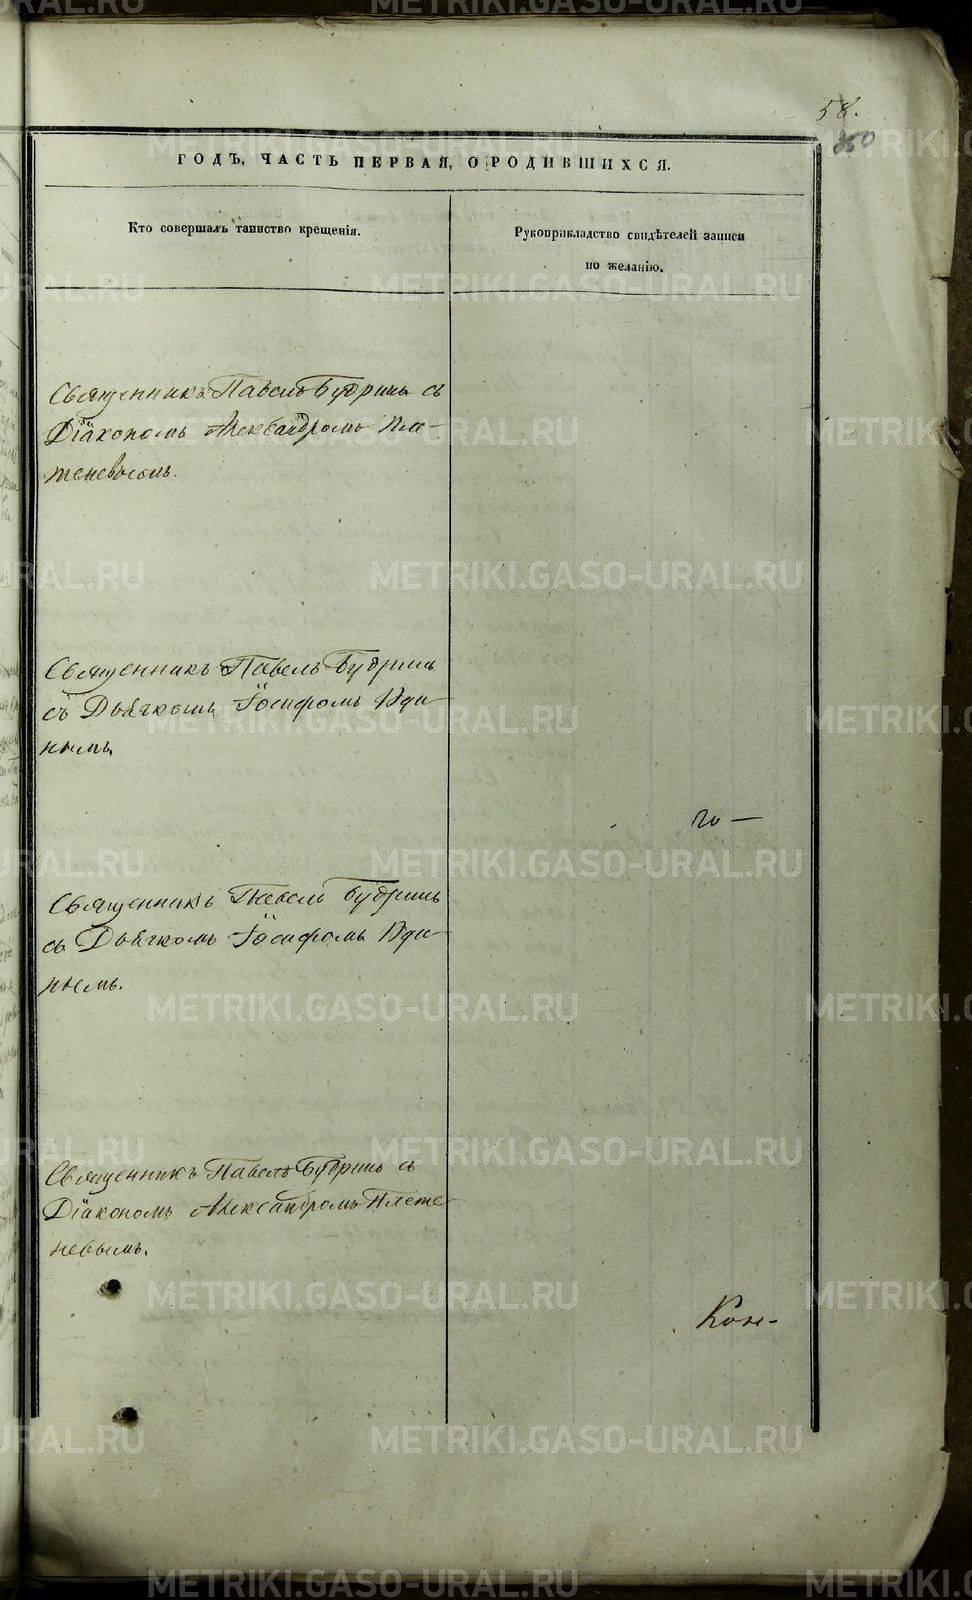 58.
350
ГОДЪ, ЧАСТЬ ПЕРВАЯ, О РОДИВШИХСЯ.
Кто совершалъ таинство крещенія.
Рукоприкладство свидѣтелей записи
по желанію.
Священникъ Павелъ Будринъ съ
Діакономъ Александромъ Пле-
теневымъ.
Священникъ Павелъ Будринъ
съ Дьячкомъ Іосифомъ
нымъ
Священникъ Павелъ Будринъ
съ Дьячкомъ Іосифомъ
нымъ.
Священникъ Павелъ Будринъ съ
Діакономъ Александромъ Плете-
невымъ.
METRIKI.GASO-URAL.RU